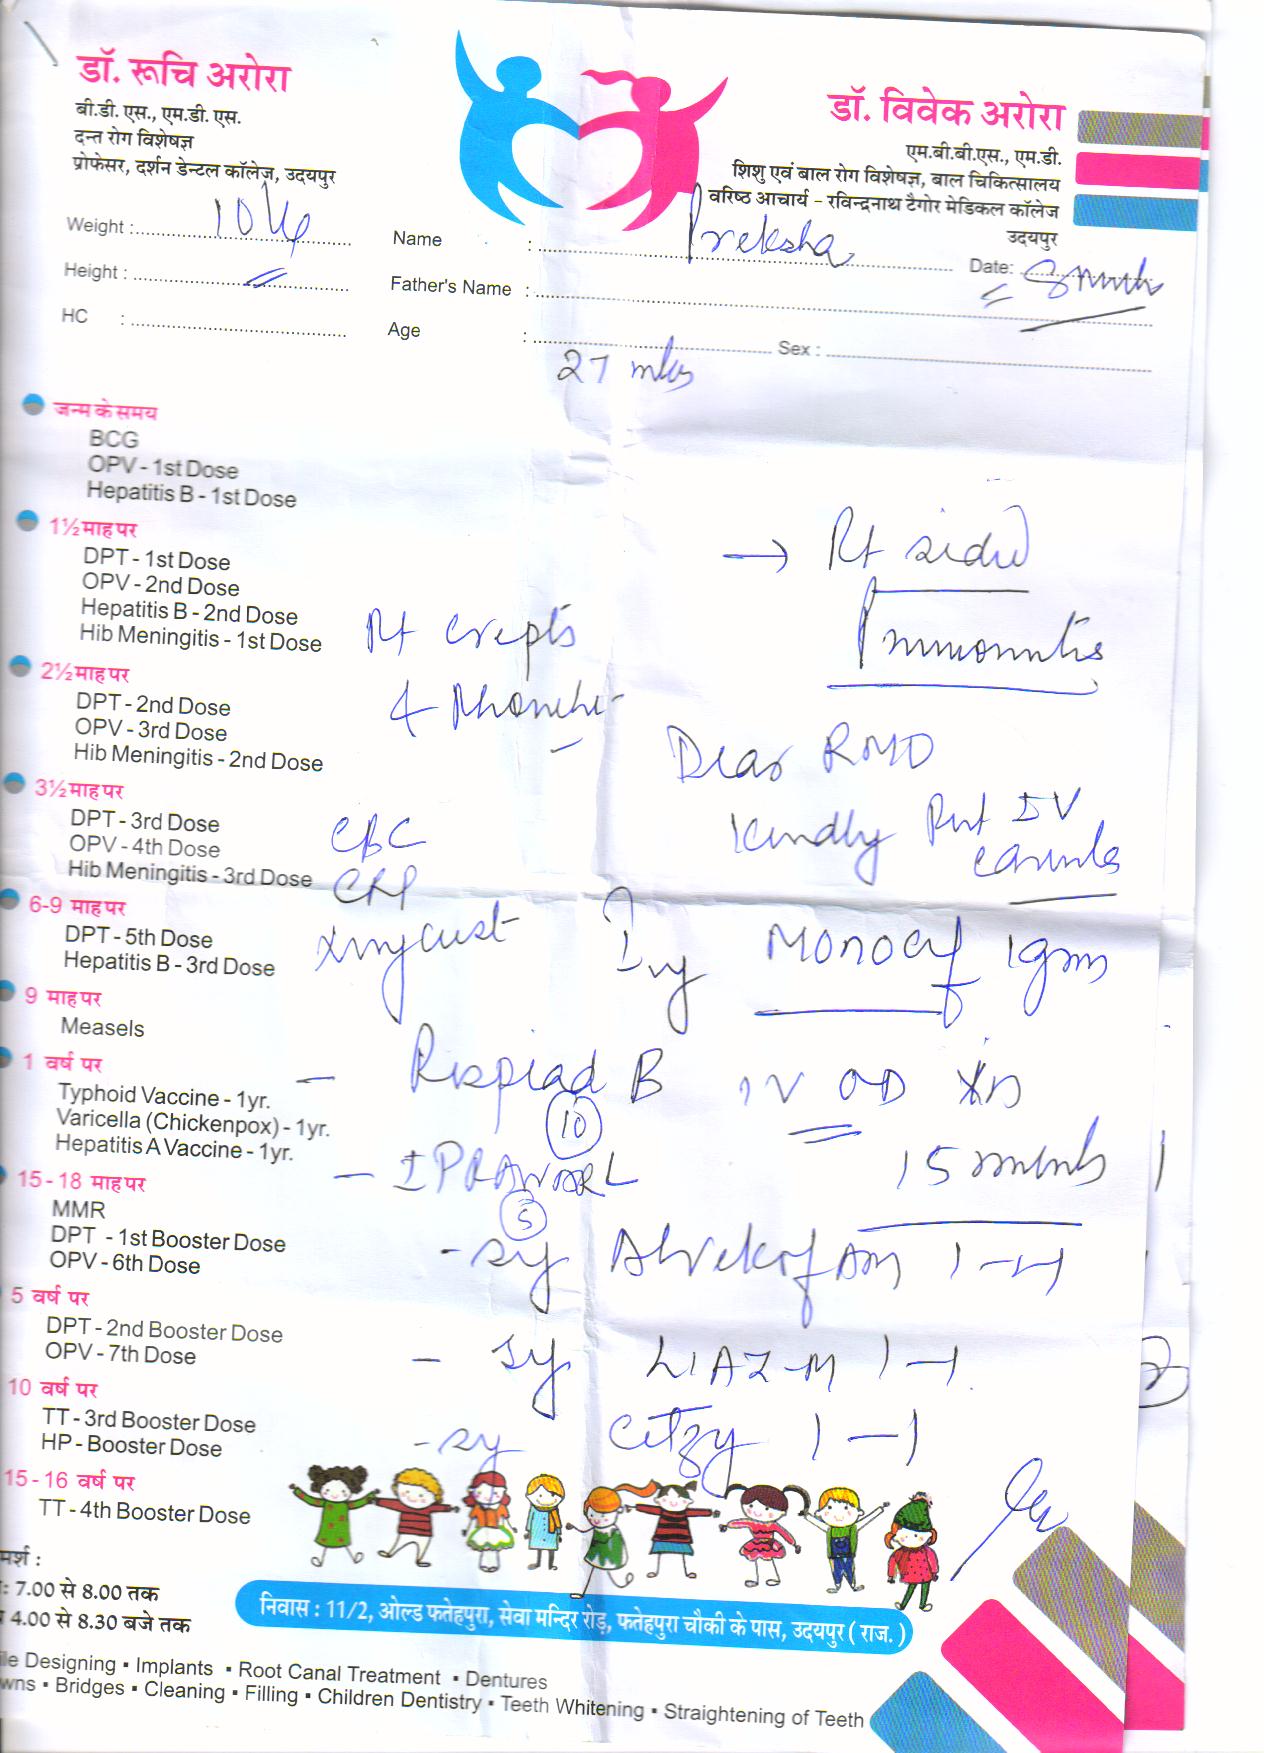 डॉ. रूचि अरोरा
बी.डी. एस., एम.डी. एस.
दन्त रोग विशेषज्ञ
प्रोफेसर, दर्शन डेन्टल कॉलेज, उदयपुर
डॉ. विवेक अरोरा
एम.बी.बी.एस., एम.डी.
शिशु एवं बाल रोग विशेषज्ञ, बाल चिकित्सालय
वरिष्ठ आचार्य – रविन्द्रनाथ टैगोर मेडिकल कॉलेज
उदयपुर
Weight : 10 kg
Name : Preksha
Date:
Height :
Father's Name :
HC :
Age : 27 mths
Sex :
जन्म के समय
BCG
OPV - 1st Dose
Hepatitis B - 1st Dose
1½ माह पर
DPT - 1st Dose
OPV - 2nd Dose
Hepatitis B - 2nd Dose
Hib Meningitis - 1st Dose
2½ माह पर
DPT - 2nd Dose
OPV - 3rd Dose
Hib Meningitis - 2nd Dose
3½ माह पर
DPT - 3rd Dose
OPV - 4th Dose
Hib Meningitis - 3rd Dose
6-9 माह पर
DPT - 5th Dose
Hepatitis B - 3rd Dose
9 माह पर
Measels
1 वर्ष पर
Typhoid Vaccine - 1yr.
Varicella (Chickenpox) - 1yr.
Hepatitis A Vaccine - 1yr.
15 - 18 माह पर
MMR
DPT - 1st Booster Dose
OPV - 6th Dose
5 वर्ष पर
DPT - 2nd Booster Dose
OPV - 7th Dose
10 वर्ष पर
TT - 3rd Booster Dose
HP - Booster Dose
15 - 16 वर्ष पर
TT - 4th Booster Dose
→ Rt sided
Pneumonitis
Rt crepts
+ Rhonchi
Dear RMO
kindly Put IV
canula
CBC
CRP
X ray chest
Inj Monocef 1gm
IV OD
10
15 minutes
5
- sy
- sy 1-1
- sy 1-1
मर्श :
: 7.00 से 8.00 तक
4.00 से 8.30 बजे तक
निवास : 11/2, ओल्ड फतेहपुरा, सेवा मन्दिर रोड़, फतेहपुरा चौकी के पास, उदयपुर ( राज. )
ile Designing ▪ Implants ▪ Root Canal Treatment ▪ Dentures
wns ▪ Bridges ▪ Cleaning ▪ Filling ▪ Children Dentistry ▪ Teeth Whitening ▪ Straightening of Teeth